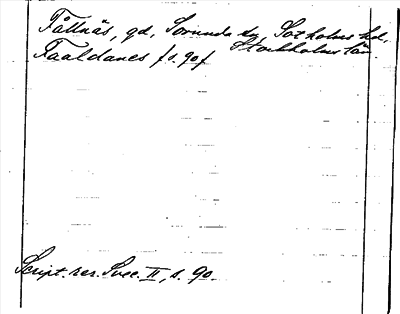 Fållnäs, gd, Sorunda sn, Sotholms hd,
Stockholms län
Faaldanes f s. 90 f
Script. rer. Svec. II, s. 90.